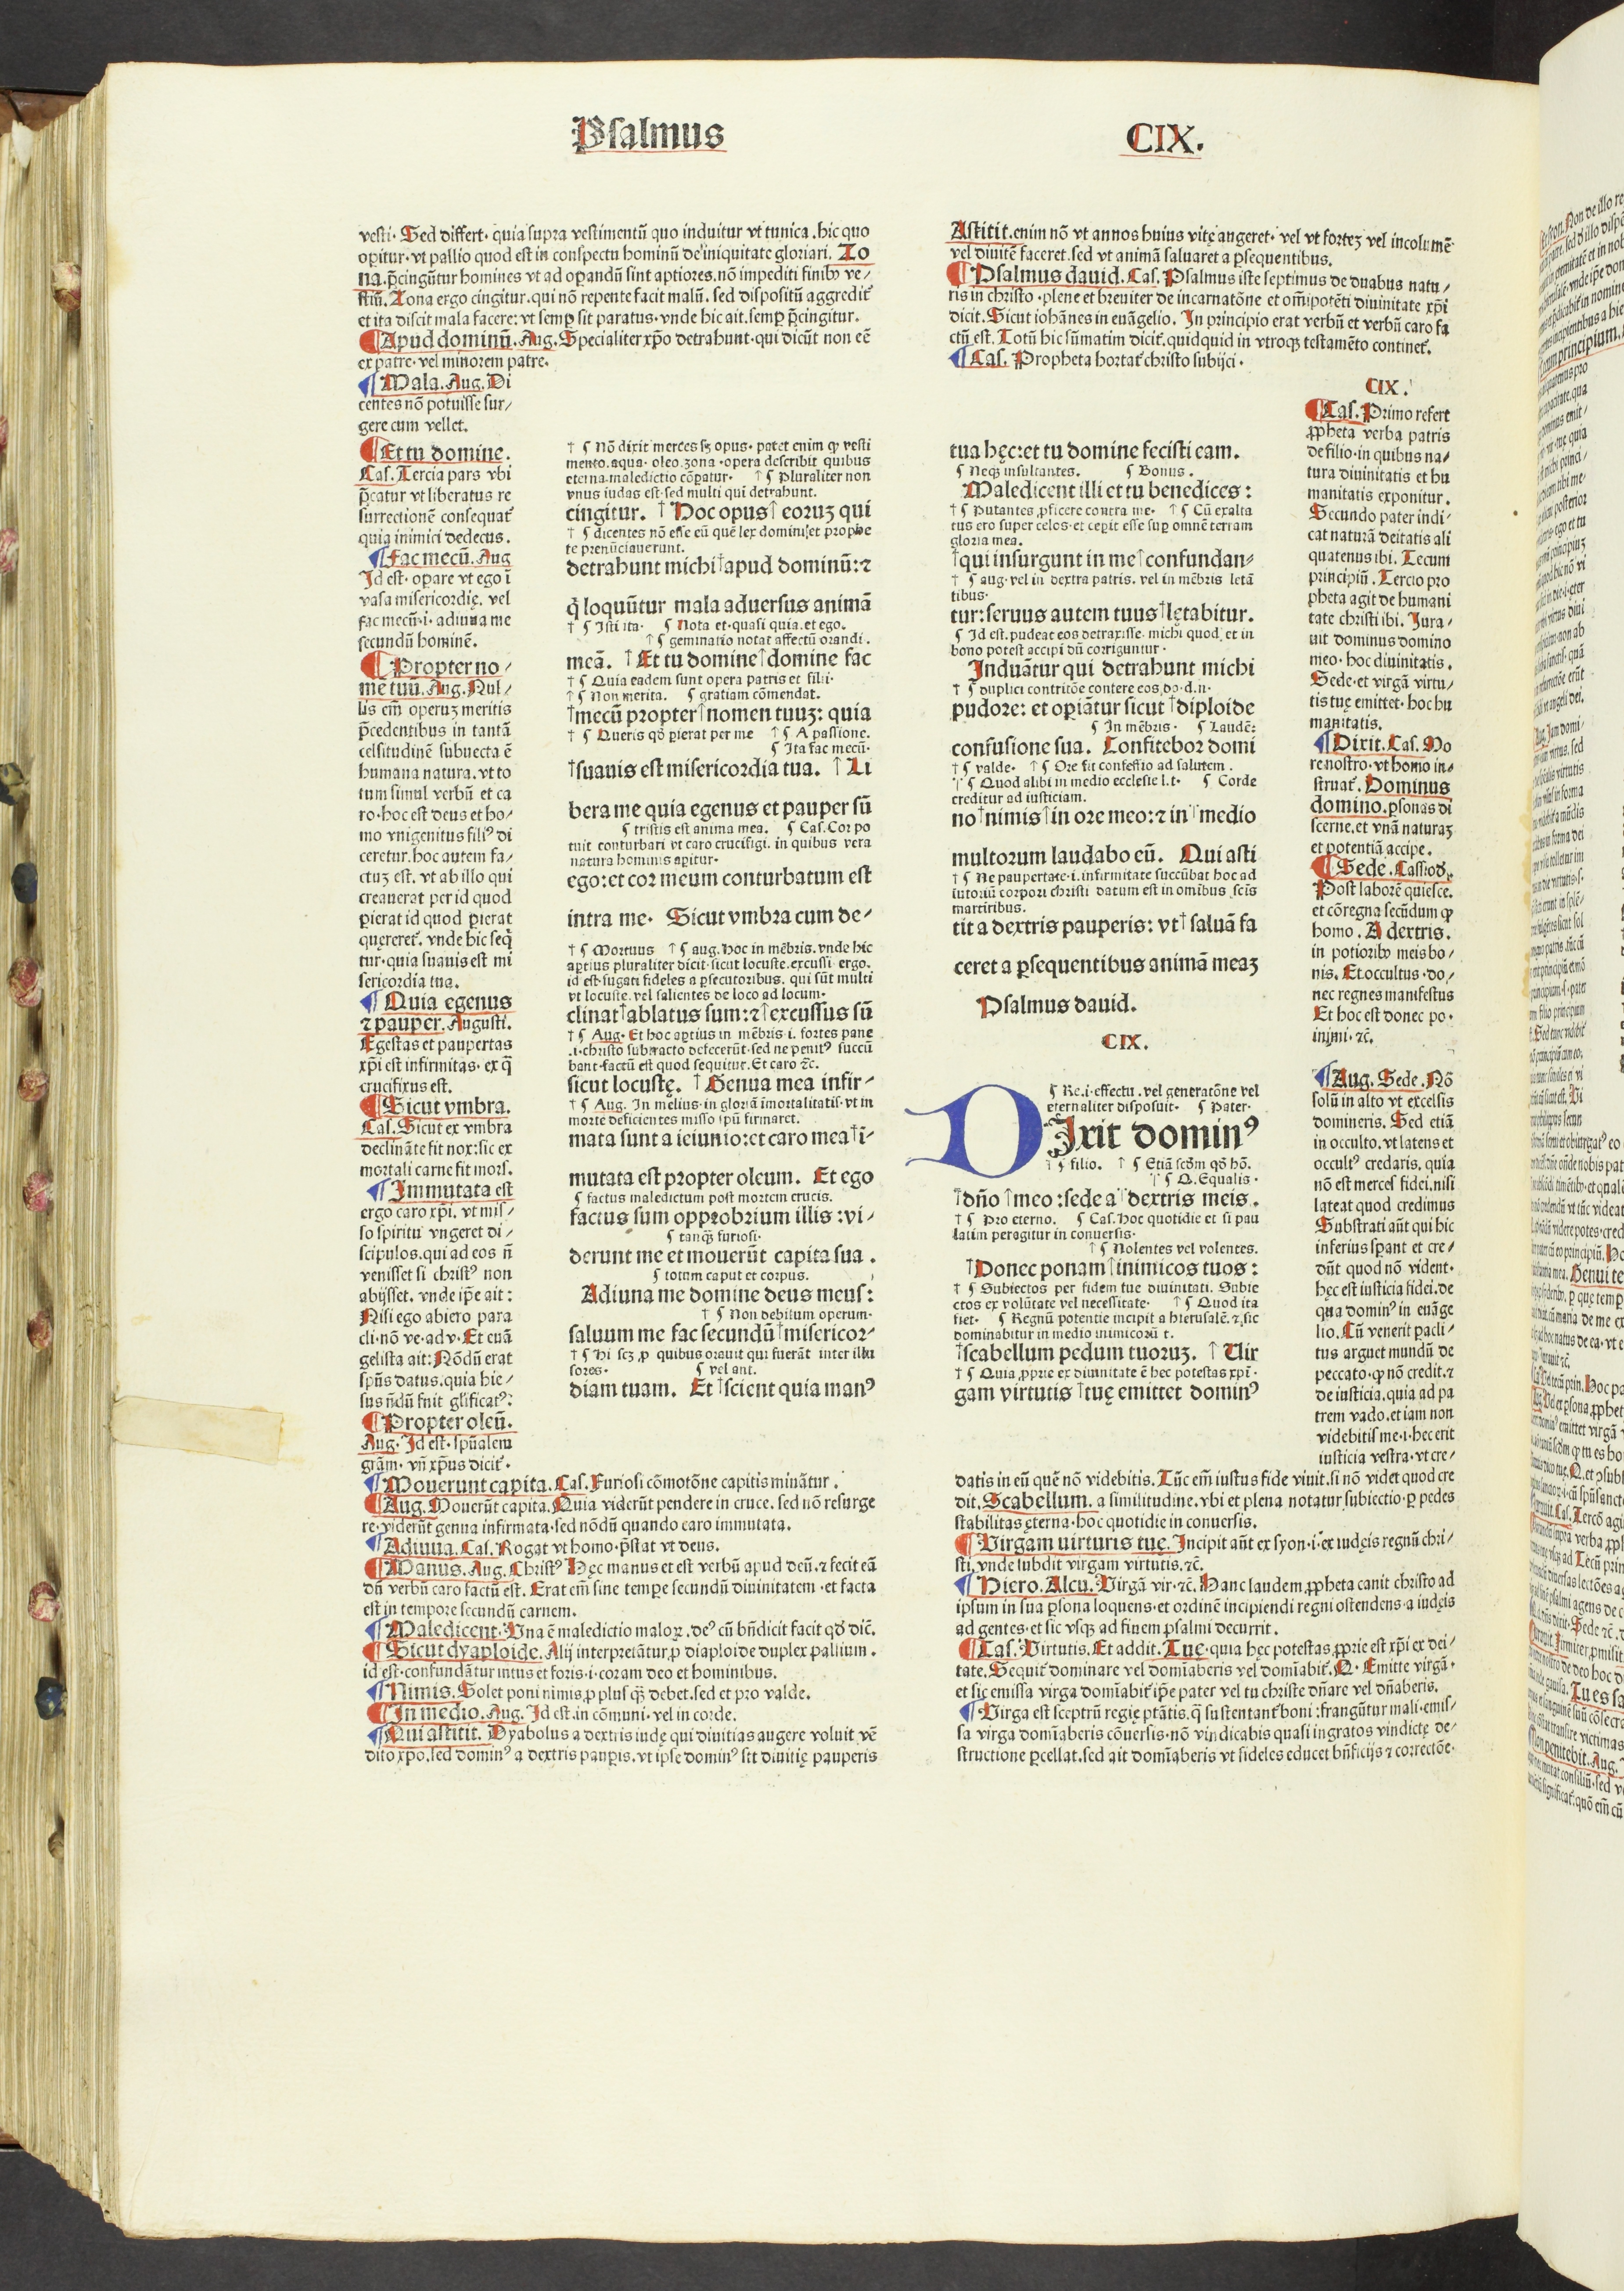 Psalmus
CIX.
vesti. Sed differt. quia supra vestimentū quo induitur vt tunica. hic quo
opitur. vt pallio quod est in conspectu hominū de iniquitate gloriari. Zo
na. p̄cingūtur homines vt ad opandū sint aptiores. nō impediti finibꝰ ve/
stiū. Zona ergo cingitur. qui nō repente facit malū. sed dispositū aggredit̄
et ita discit mala facere: vt semp sit paratus. vnde hic ait. semp p̄cingitur.
¶ Apud dominū. Aug. Specialiter xp̄o detrahunt. qui dicūt non eē
ex patre. vel minorem patre.
¶ Mala. Aug. Di
centes nō potuisse sur/
gere cum vellet.
¶ Et tu domine.
Cas. Tercia pars vbi
p̄catur vt liberatus re
surrectionē consequat̄
quia inimici dedecus.
¶ Fac mecū. Aug
Id est. opare vt ego ī
vasa misericordię. vel
fac mecū. i. adiuua me
secundū hominē.
¶ Propter no/
me tuū. Aug. Nul/
lis em̄ operuꝫ meritis
p̄cedentibus in tantā
celsitudinē subuecta ē
humana natura. vt to
tum simul verbū et ca
ro. hoc est deus et ho/
mo vnigenitus filiꝰ di
ceretur. hoc autem fa/
ctuꝫ est. vt ab illo qui
creauerat per id quod
pierat id quod pierat
quęreret̄. vnde hic seq̄
tur. quia suauis est mi
sericordia tua.
¶ Quia egenus
⁊ pauper. Augusti.
Egestas et paupertas
xp̄i est infirmitas. ex q̄
crucifixus est.
¶ Sicut vmbra.
Cas. Sicut ex vmbra
declināte fit nox: sic ex
mortali carne fit mors.
¶ Immutata est
ergo caro xp̄i. vt mis/
so spiritu vngeret di/
scipulos. qui ad eos n̄
venisset si christꝰ non
abijsset. vnde ip̄e ait:
Nisi ego abiero para
cli. nō ve. ad v. Et euā
gelista ait: Nōdū erat
sp̄us datus. quia hie/
sus n̄dū fuit glificatꝰ:
¶ Propter oleū.
Aug. Id est. sp̄ualem
grām. vn̄ xp̄us dicit̄.
† ¶ Nō dixit merces sꝫ opus. patet enim ꝙ vesti
mento. aqua. oleo. zona. opera describit quibus
eterna. maledictio cōpatur. † ¶ Pluraliter non
vnus iudas est. sed multi qui detrahunt.
cingitur. † Hoc opus † eoruꝫ qui
† ¶ dicentes nō esse eū quē lex domini et prophe
te prenūciauerunt.
detrahunt michi † apud dominū: ⁊
q̄ loquūtur mala aduersus animā
† ¶ Isti ita. ¶ Nota et. quasi quia. et ego.
† ¶ geminatio notat affectū orandi.
meā. † Et tu domine † domine fac
† ¶ Quia eadem sunt opera patris et filii.
† ¶ Non merita. ¶ gratiam cōmendat.
† mecū propter † nomen tuuꝫ: quia
† ¶ Queris qd̄ pierat per me † ¶ A passione.
¶ Ita fac mecū.
† suauis est misericordia tua. † Li
bera me quia egenus et pauper sū
¶ tristis est anima mea. ¶ Cas. Cor po
tuit conturbari vt caro crucifigi. in quibus vera
natura hominis apitur.
ego: et cor meum conturbatum est
intra me. Sicut vmbra cum de/
† ¶ Mortuus † ¶ aug. hoc in mēbris. vnde hic
aptius pluraliter dicit. sicut locuste. excussi ergo.
id est. fugati fideles a psecutoribus. qui sūt multi
vt locuste. vel salientes de loco ad locum.
clinat † ablatus sum: ⁊ † excussus sū
† ¶ Aug. Et hoc aptius in mēbris. i. fortes pane
.i. christo subtracto defecerūt. sed ne penitꝰ succū
bant. factū est quod sequitur. Et caro ⁊c̄.
sicut locustę. † Genua mea infir/
† ¶ Aug. In melius. in gloriā īmortalitatis. vt in
morte deficientes misso sp̄u firmaret.
mata sunt a ieiunio: et caro mea † i/
mutata est propter oleum. Et ego
¶ factus maledictum post mortem crucis.
factus sum opprobrium illis: vi/
¶ tanqꝫ furiosi.
derunt me et mouerūt capita sua.
¶ totum caput et corpus.
Adiuua me domine deus meus:
† ¶ Non debitum operum.
saluum me fac secundū † misericor/
† ¶ Hi scꝫ p quibus orauit qui fuerāt inter illu
sores. ¶ vel ant.
diam tuam. Et † scient quia manꝰ
¶ Mouerunt capita. Cas. Furiosi cōmotōne capitis minātur.
¶ Aug. Mouerūt capita. Quia viderūt pendere in cruce. sed nō resurge
re. viderūt genua infirmata. sed nōdū quando caro immutata.
¶ Adiuua. Cas. Rogat vt homo. p̄stat vt deus.
¶ Manus. Aug. Christꝰ Hęc manus et est verbū apud deū. ⁊ fecit eā
dū verbū caro factū est. Erat em̄ sine tempe secundū diuinitatem. et facta
est in tempore secundū carnem.
¶ Maledicent. Una ē maledictio maloꝝ. deꝰ cū bn̄dicit facit qd̄ dic̄.
¶ Sicut dyaploide. Alij interpretātur p diaploide duplex pallium.
id est. confundātur intus et foris. i. coram deo et hominibus.
¶ Nimis. Solet poni nimis p plus qꝫ debet. sed et pro valde.
¶ In medio. Aug. Id est. in cōmuni. vel in corde.
¶ Qui astitit. Dyabolus a dextris iudę qui diuitias augere voluit vē
dito xp̄o. sed dominꝰ a dextris paupis. vt ipse dominꝰ sit diuitię pauperis
Astitit. enim nō vt annos huius vitę augeret. vel vt forteꝫ vel incolumē
vel diuitē faceret. sed vt animā saluaret a psequentibus.
¶ Psalmus dauid. Cas. Psalmus iste septimus de duabus natu/
ris in christo. plene et breuiter de incarnatōne et om̄ipotēti diuinitate xp̄i
dicit. Sicut iohānes in euāgelio. In principio erat verbū et verbū caro fa
ctū est. Totū hic sūmatim dicit̄. quidquid in vtroqꝫ testamēto continet̄.
¶ Cas. Propheta hortat̄ christo subijci.
tua hęc: et tu domine fecisti eam.
¶ Neqꝫ insultantes. ¶ Bonus.
Maledicent illi et tu benedices:
† ¶ Putantes pficere contra me. † ¶ Cū exalta
tus ero super celos. et cepit esse sup omnē terram
gloria mea.
† qui insurgunt in me † confundan/
† ¶ aug. vel in dextra patris. vel in mēbris letā
tibus.
tur: seruus autem tuus † lętabitur.
¶ Id est. pudeat eos detraxisse michi quod et in
bono potest accipi dū corriguntur.
Induātur qui detrahunt michi
† ¶ duplici contritōe contere eos dō. d. n.
pudore: et opiātur sicut † diploide
¶ In mēbris. ¶ Laudē:
confusione sua. Confitebor domi
† ¶ valde. † ¶ Ore fit confessio ad salutem.
† ¶ Quod alibi in medio ecclesie l. t. ¶ Corde
creditur ad iusticiam.
no † nimis † in ore meo: ⁊ in † medio
multorum laudabo eū. Qui asti
† ¶ Ne paupertate. i. infirmitate succūbat hoc ad
iutoriū corpori christi datum est in omībus scīs
martiribus.
tit a dextris pauperis: vt † saluā fa
ceret a psequentibus animā meaꝫ
Psalmus dauid.
CIX.
¶ Re. i. effectu. vel generatōne vel
eternaliter disposuit. ¶ Pater.
DIxit dominꝰ
† ¶ filio. † ¶ Etiā scd̄m qd̄ hō.
† ¶ Q. Equalis.
† dn̄o † meo: sede a † dextris meis.
† ¶ Pro eterno. ¶ Cas. Hoc quotidie et si pau
latim peragitur in conuersis.
† ¶ Nolentes vel volentes.
† Donec ponam † inimicos tuos:
† ¶ Subiectos per fidem tue diuinitati. Subie
ctos ex volūtate vel necessitate. † ¶ Quod ita
fiet. ¶ Regnū potentie incipit a hierusalē. ⁊ sic
dominabitur in medio inimicorū t.
† scabellum pedum tuoruꝫ. † Uir
† ¶ Quia pprie ex diuinitate ē hec potestas xp̄i.
gam virtutis † tuę emittet dominꝰ
CIX.
¶ Cas. Primo refert
ppheta verba patris
de filio. in quibus na/
tura diuinitatis et hu
manitatis exponitur.
Secundo pater indi/
cat naturā deitatis ali
quatenus ibi. Tecum
principiū. Tercio pro
pheta agit de humani
tate christi ibi. Iura/
uit dominus domino
meo. hoc diuinitatis.
Sede. et virgā virtu/
tis tuę emittet. hoc hu
manitatis.
¶ Dixit. Cas. Mo
re nostro. vt homo in/
struat̄. Dominus
domino. psonas di
scerne. et vnā naturaꝫ
et potentiā accipe.
¶ Sede. Cassiod.
Post laborē quiesce.
et cōregna secūdum ꝙ
homo. A dextris.
in potioribꝰ meis bo/
nis. Et occultus. do/
nec regnes manifestus
Et hoc est donec po.
inimi. ⁊c̄.
¶ Aug. Sede. Nō
solū in alto vt excelsis
domineris. Sed etiā
in occulto. vt latens et
occultꝰ credaris. quia
nō est merces fidei. nisi
lateat quod credimus
Substrati aūt qui hic
inferius spant et cre/
dūt quod nō vident.
hęc est iusticia fidei. de
qua dominꝰ in euāge
lio. Cū venerit pacli/
tus arguet mundū de
peccato. ꝙ nō credit. ⁊
de iusticia. quia ad pa
trem vado. et iam non
videbitis me. i. hec erit
iusticia vestra. vt cre/
datis in eū quē nō videbitis. Tūc em̄ iustus fide viuit. si nō videt quod cre
dit. Scabellum. a similitudine. vbi et plena notatur subiectio. p pedes
stabilitas ęterna. hoc quotidie in conuersis.
¶ Virgam uirturis tuę. Incipit aūt ex syon. i. ex iudęis regnū chri/
sti. vnde subdit virgam virtutis. ⁊c̄.
¶ Hiero. Alcu. Virgā vir. ⁊c̄. Hanc laudem ppheta canit christo ad
ipsum in sua psona loquens. et ordinē incipiendi regni ostendens. a iudęis
ad gentes. et sic vsqꝫ ad finem psalmi decurrit.
¶ Cas. Virtutis. Et addit. Tue. quia hęc potestas pprie est xp̄i ex dei/
tate. Sequit̄ dominare vel domīaberis vel domīabit̄. Q. Emitte virgā.
et sic emissa virga domīabit̄ ip̄e pater vel tu christe dn̄are vel dn̄aberis.
¶ Virga est sceptrū regię ptātis. q̄ sustentant̄ boni: frangūtur mali. emis/
sa virga domīaberis cōuersis. nō vindicabis quasi ingratos vindictę de/
structione pcellat. sed ait domīaberis vt fideles educet bn̄ficijs ⁊ correctōe.